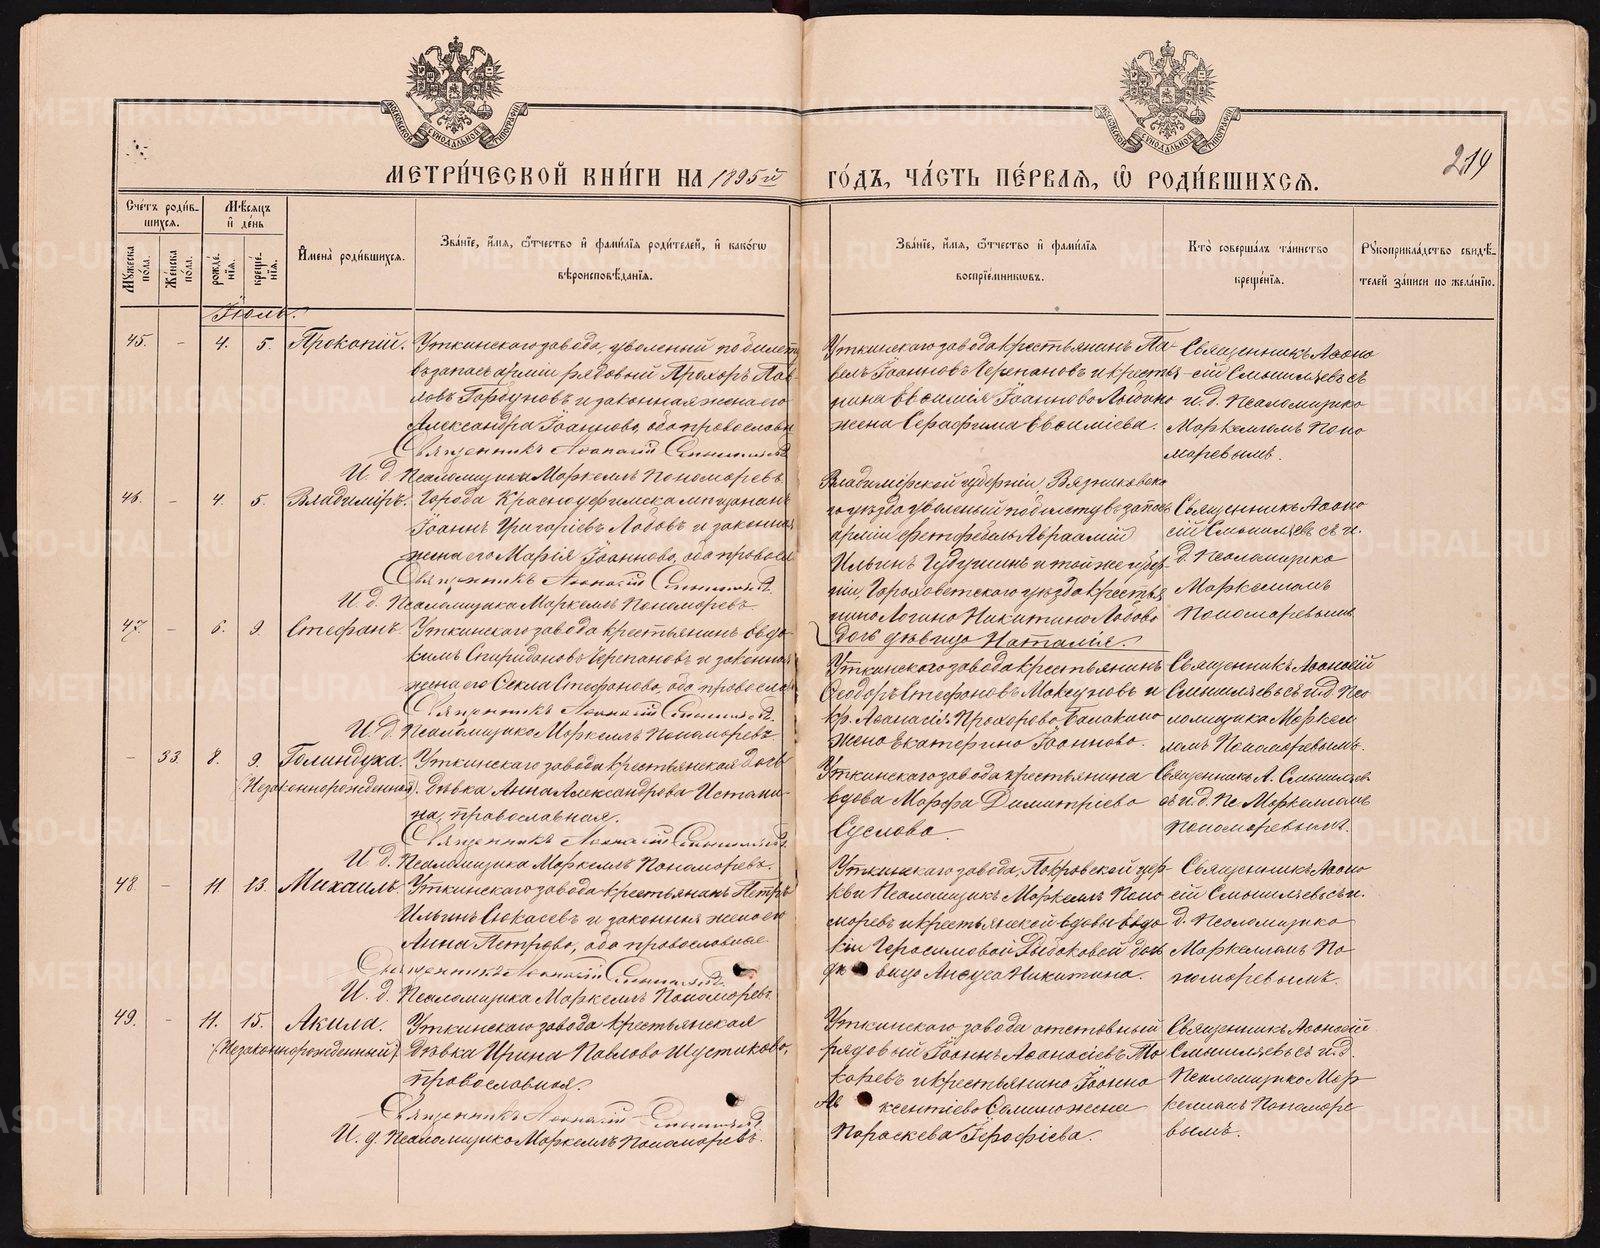 МЕТРИ́ЧЕСКОЙ КНИ́ГИ НА 1895й ГО́ДЪ, ЧА́СТЬ ПЕ́РВАЯ, Ѽ РОДИ́ВШИХСЯ.
214
Сче́тъ роди́в-
шихся.
Мꙋ́жеска по́ла.
Же́нска по́ла.
Мѣ́сяцъ и҆ де́нь
рожде́нїѧ.
креще́нїѧ.
И҆мена̀ роди́вшихся.
Зва́нїе, и҆́мѧ, ѻ҆́тчество и҆ фами́лїѧ роди́телей, и҆ како́гѡ
вѣроисповѣ́данїѧ.
Зва́нїе, и҆́мѧ, ѻ҆́тчество и҆ фами́лїѧ
воспрїе́мникѡвъ.
Кто̀ соверша́лъ та́инство
креще́нїѧ.
Рꙋкоприкла́дство свидѣ́-
телей за́писи по жела́нїю.
Іюль.
45. - 4. 5. Прокопій.
Уткинскаго завода, уволеный по билету
въ запасъ арміи рядовый Прохоръ Пав-
ловъ Горбуновъ и законная жена его
Александра Іоаннова, оба православн
Священникъ Аѳанасій Смышляевъ
И. д. Псаломщика Маркеллъ Пономаревъ.
Уткинскаго завода крестьянинъ Па-
велъ Іоанновъ Черепановъ и крестья-
нина Евсимія Іоаннова
жена Серафима Евсиміева.
Священникъ Аѳана-
сій Смышляевъ съ
и. д. Псаломщика
Маркелломъ Поно
маревымъ.
46. - 4. 5. Владиміръ.
Города Красноуфимска мѣщанинъ
Іоаннъ Григоріевъ Лобовъ и законна
жена его Марія Іоаннова, оба правосл
Священникъ Аѳанасій Смышляевъ
И. д. Псаломщика Маркеллъ Пономаревъ.
Владимірской губерніи Вязниковска
го уѣзда уволеный по билету въ запасъ
арміи фельдфебель Авраамій
Ильинъ и той же губер-
ніи, Гороховетскаго уѣзда крестья
нина Логина Никитина Лобова
дочь дѣвица Наталія.
Священникъ Аѳана
сій Смышляевъ съ и.
д. Псаломщика
Маркелломъ
Пономаревымъ
47. - 6. 9. Стефанъ.
Уткинскаго завода крестьянинъ Евдо-
кимъ Спиридоновъ Черепановъ и законная
жена его Ѳекла Стефанова, оба правосла
Священникъ Аѳанасій Смышляевъ.
И. д. Псаломщика Маркеллъ Пономаревъ.
Уткинскаго завода крестьянинъ
Ѳеодоръ Стефановъ Максуновъ и
кр. Аѳанасія Прохорова Балакина
жена Екатерина Іоаннова.
Священникъ Аѳанасій
Смышляевъ съ и. д. Пса
ломщика Маркел
ломъ Пономаревымъ.
- 33. 8. 9. Голиндуха.
(Незаконнорожденная).
Уткинскаго завода крестьянская дочь
дѣвка Анна Александрова Истоми-
на, православная.
Священникъ Аѳанасій Смышляевъ.
И. д. Псаломщика Маркеллъ Пономаревъ.
Уткинскаго завода крестьянина
вдова Марфа Димитріева
Суслова.
Священникъ А. Смышляевъ
съ и. д. Пс. Маркелломъ
Пономаревымъ.
48 - 11. 13. Михаилъ
Уткинскаго завода крестьянинъ Петръ
Ильинъ Сюкасевъ и законная жена его
Анна Петрова, оба православные
Священникъ Аѳанасій Смышляевъ.
И. д. Псаломщика Маркеллъ Пономаревъ.
Уткинскаго завода, Покровской цер-
кви Псаломщикъ Маркеллъ Поно
маревъ и крестьянской вдовы Евдо
кіи Герасимовой Рыбаковой дочь
дѣвица Анфуса Никитина.
Священникъ Аѳана
сій Смышляевъ съ и.
д. Псаломщика
Маркелломъ По
номаревымъ.
49. - 11. 15. Акила.
(Незаконнорожденный).
Уткинскаго завода крестьянская
дѣвка Ирина Павлова Шустикова,
православная.
Священникъ Аѳанасій Смышляевъ
И. д. Псаломщика Маркеллъ Пономаревъ.
Уткинскаго завода отставный
рядовый Іоаннъ Аѳанасіевъ То
каревъ и крестьянина Іоанна
Авксентіева Сомина жена
Параскева Іерофіева.
Священникъ Аѳанасій
Смышляевъ съ и. д.
Псаломщика Мар
келломъ Пономаре
вымъ.
METRIKI.GASO-URAL.RU